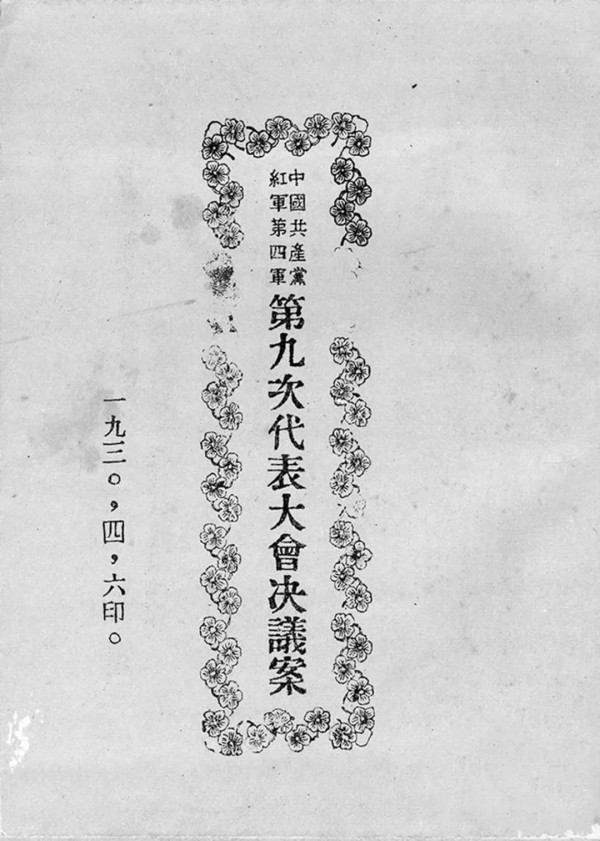 中國共產黨
紅軍第四軍
第九次代表大會决議案
一九三〇，四，六印。